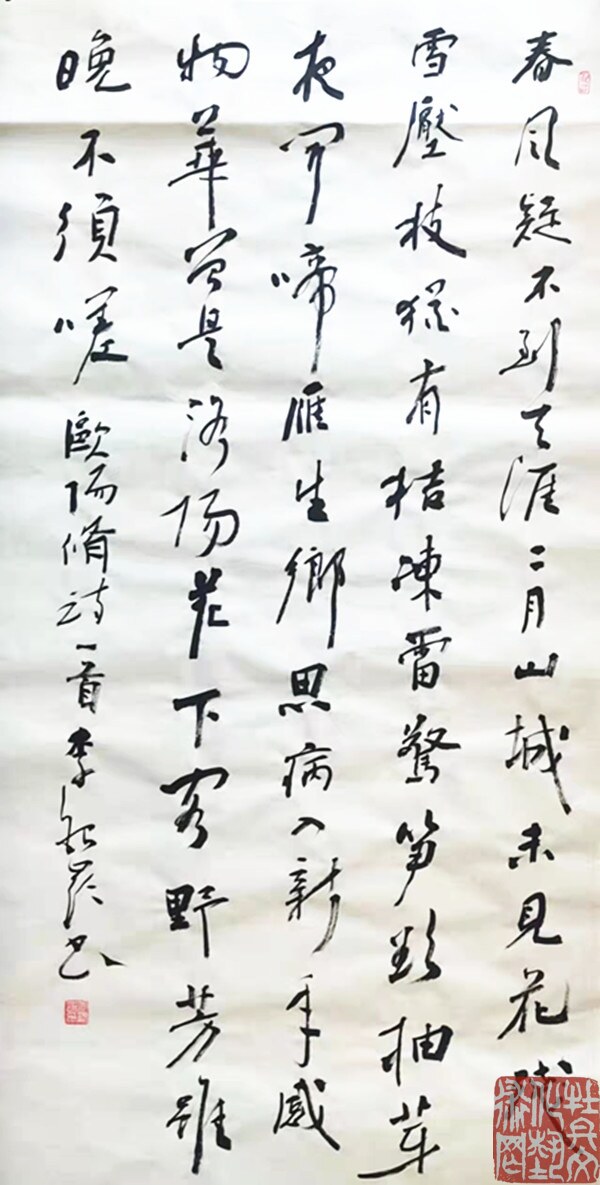 春風疑不到天涯二月山城未見花殘
雪壓枝猶有桔凍雷驚笋欲抽芽
夜聞啼雁生鄉思病入新年感
物華曾是洛陽花下客野芳雖
晚不須嗟 歐陽脩詩一首 李書